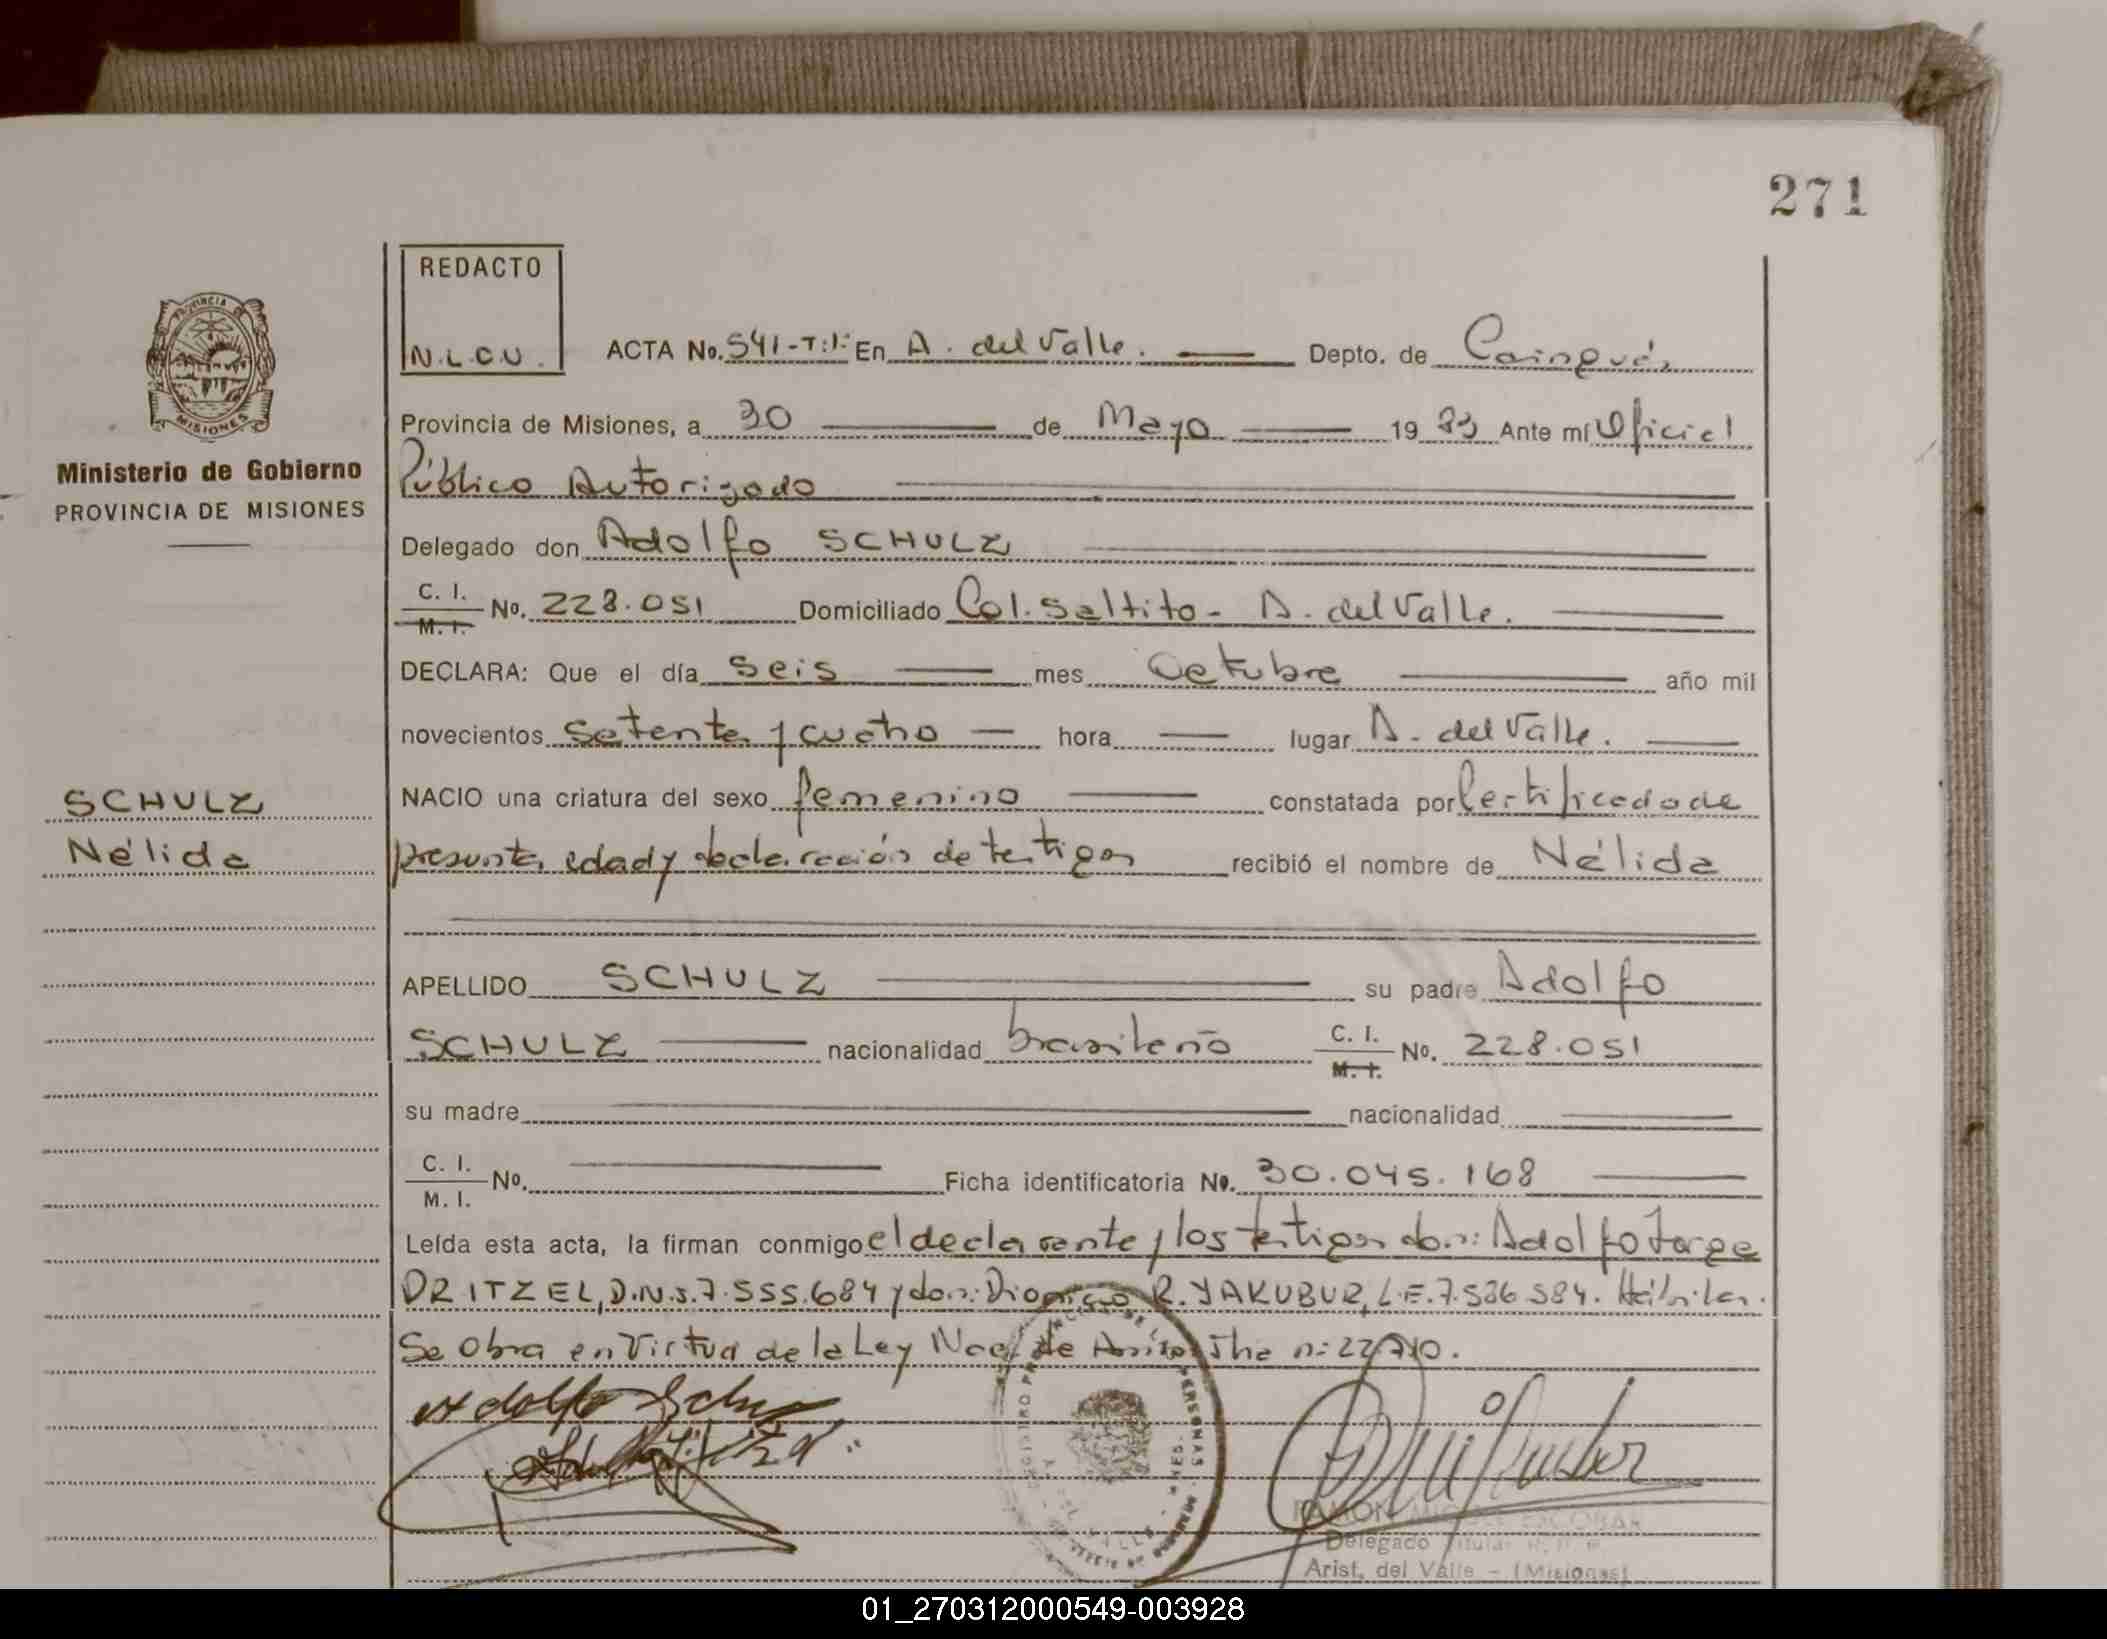 271
REDACTO
N.L.C.U.
PROVINCIA
MISIONES
ACTA No. 541-T:1: En A. del Valle. Depto. de Cainguás
Provincia de Misiones, a 30 de Mayo 1983 Ante mí Oficial
Ministerio de Gobierno
PROVINCIA DE MISIONES
Público Autorizado
Delegado don Adolfo SCHULZ
C. I.
M. I. No. 228.051 Domiciliado Col. Saltito - A. del Valle.
DECLARA: Que el día seis mes Octubre año mil
novecientos setenta y cuatro hora lugar A. del Valle.
SCHULZ
Nélida
NACIO una criatura del sexo femenino constatada por Certificado de
presunta edad y declaración de testigos recibió el nombre de Nélida
APELLIDO SCHULZ su padre Adolfo
SCHULZ nacionalidad brasileño C. I.
M. I. No. 228.051
su madre nacionalidad
C. I.
M. I. No. Ficha identificatoria No. 30.045.168
Leída esta acta, la firman conmigo el declarante y los testigos don: Adolfo Jorge
DRITZEL, D.N.I. 7.555.684 y don: Dionicio R. YAKUBUR, L.E. 7.536.584. Hábiles.
Se Obra en Virtud de la Ley Nac. de Amnistía n: 22.710.
Adolfo Schulz
RAMON ANGEL ESCOBAR
Delegado Titular
Arist. del Valle - (Misiones)
01_270312000549-003928